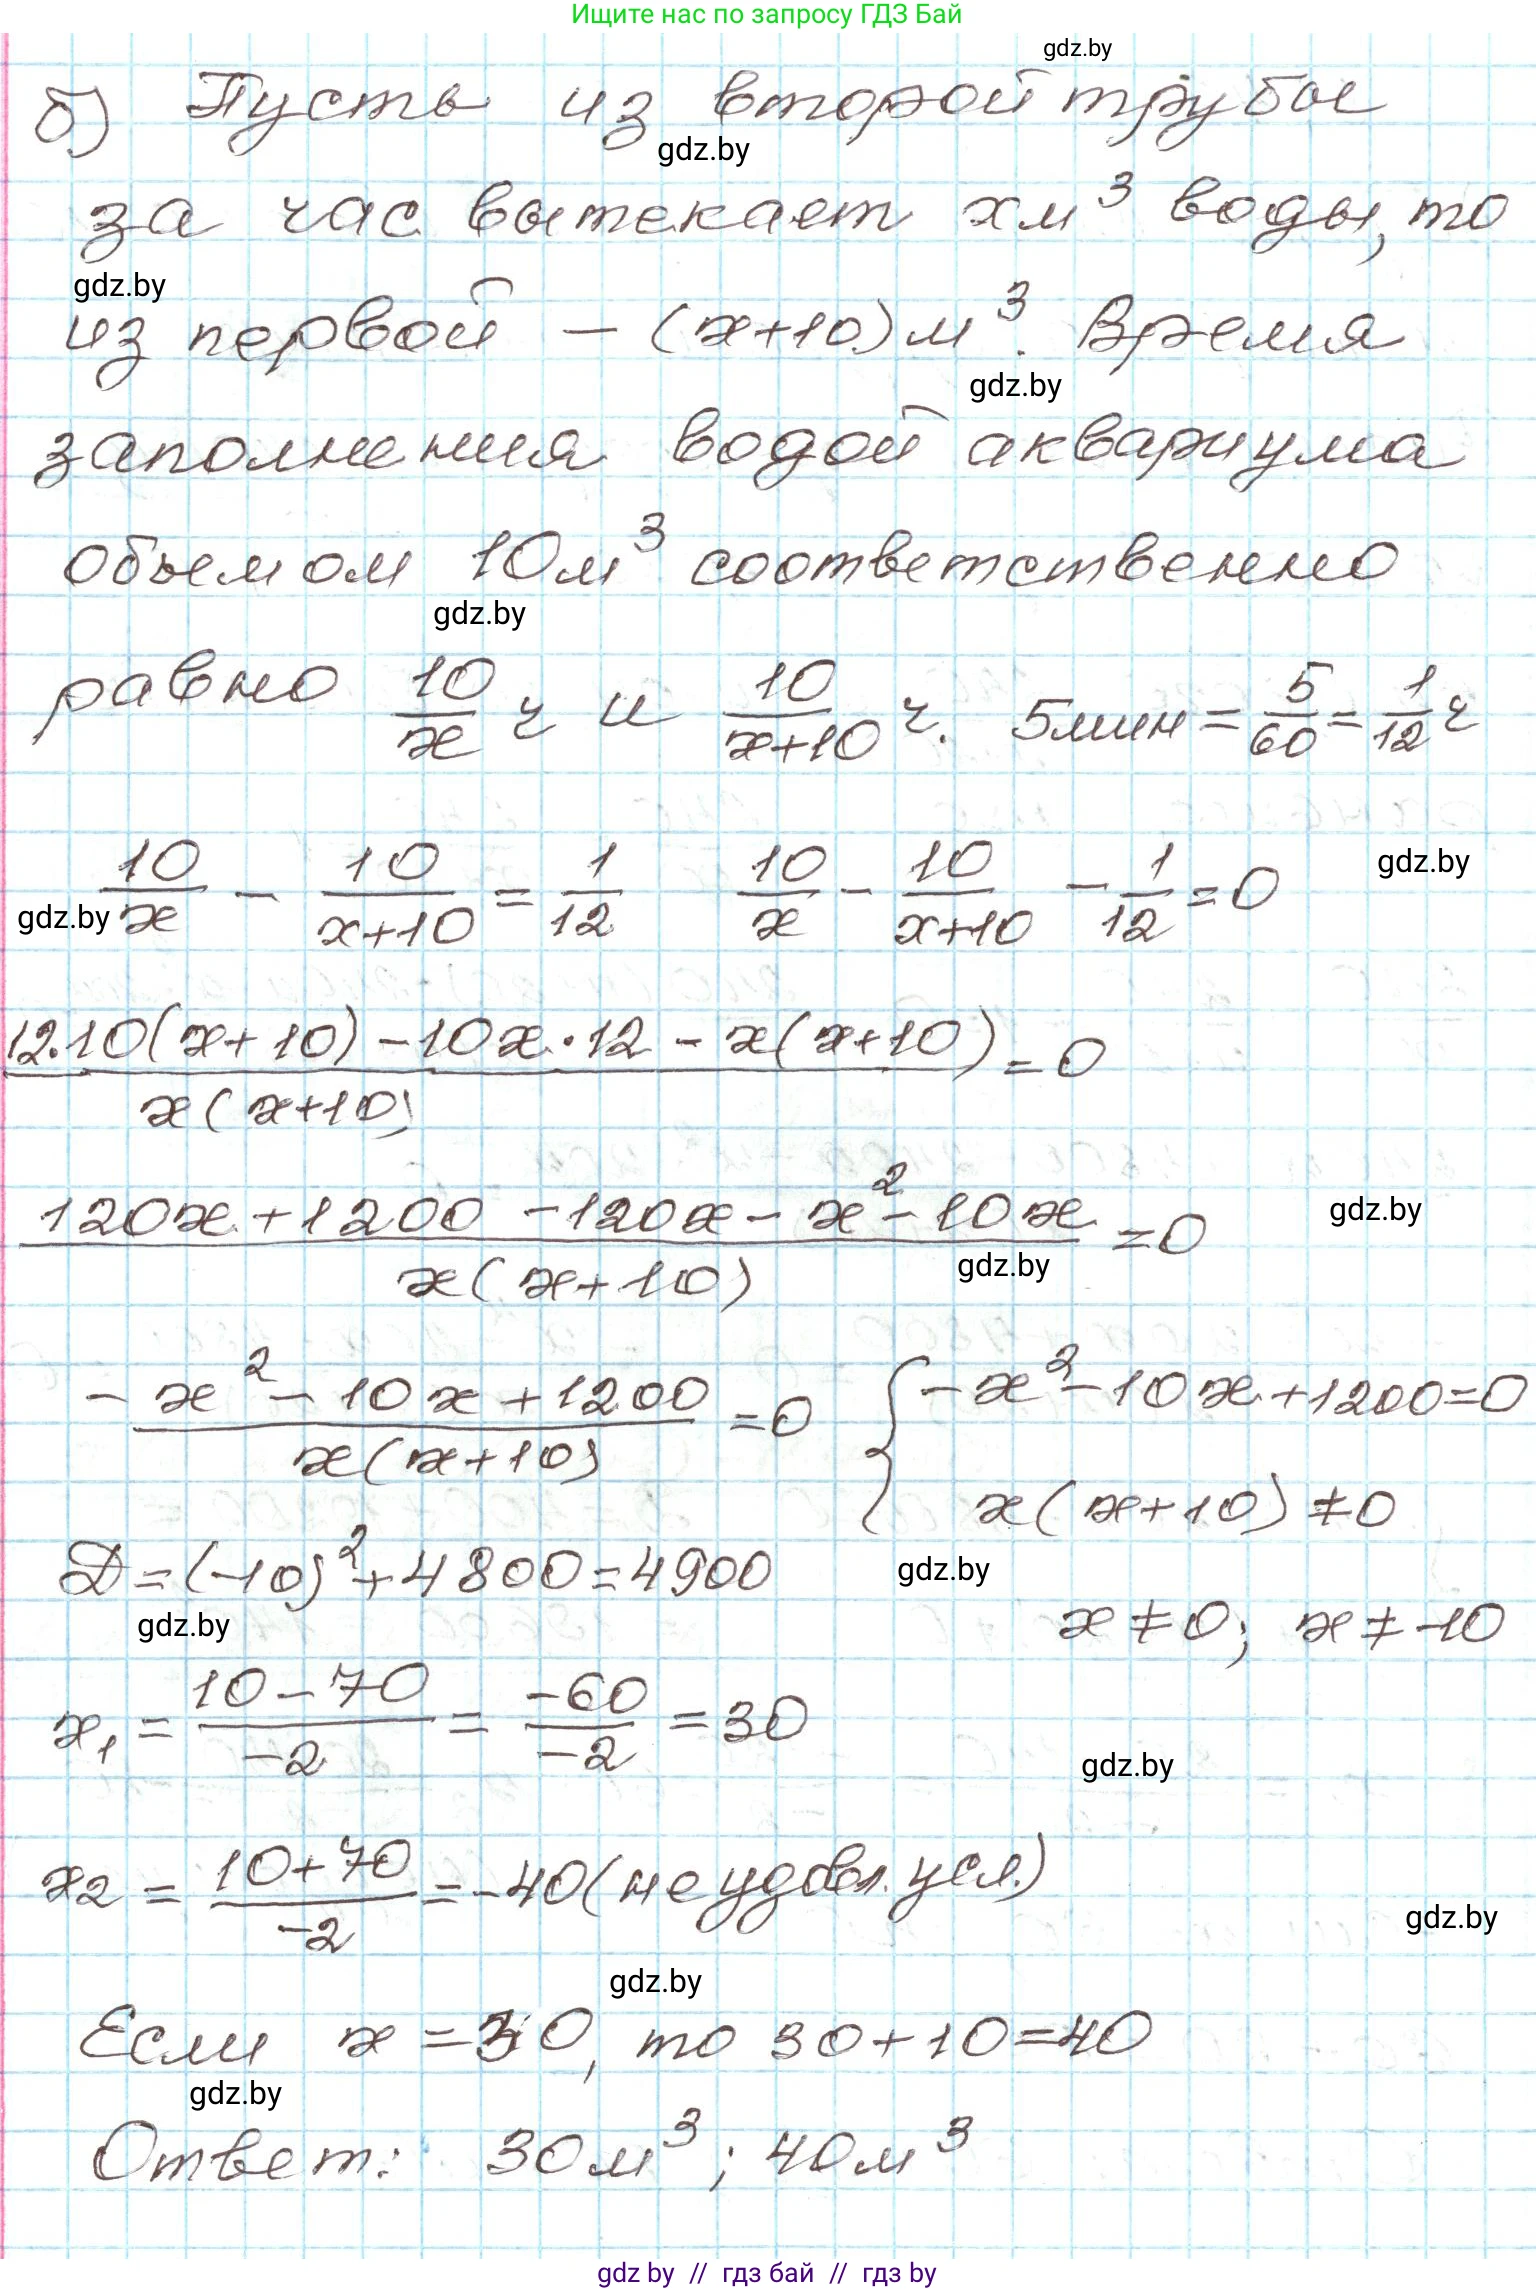 Ищите нас по запросу ГДЗ Бай
gdz.by
б) Пусть из второй трубы
gdz.by
за час вытекает x м³ воды, то
gdz.by
из первой – (x+10) м³. Время
gdz.by
заполнения водой аквариума
объемом 10 м³ соответственно
gdz.by
равно 10/x ч и 10/(x+10) ч. 5 мин = 5/60 = 1/12 ч
gdz.by
10/x - 10/(x+10) = 1/12   10/x - 10/(x+10) - 1/12 = 0
gdz.by
(12·10(x+10) - 10x·12 - x(x+10))/(x(x+10)) = 0
(120x + 1200 - 120x - x² - 10x)/(x(x+10)) = 0
gdz.by
gdz.by
(-x² - 10x + 1200)/(x(x+10)) = 0   { -x² - 10x + 1200 = 0
x(x+10) ≠ 0
D = (-10)² + 4800 = 4900
gdz.by
gdz.by
x ≠ 0; x ≠ -10
x₁ = (10-70)/(-2) = (-60)/(-2) = 30
gdz.by
x₂ = (10+70)/(-2) = -40 (не удовл. усл.)
gdz.by
gdz.by
Если x = 30, то 30+10=40
gdz.by
Ответ: 30 м³; 40 м³
gdz by // гдз бай // гдз by